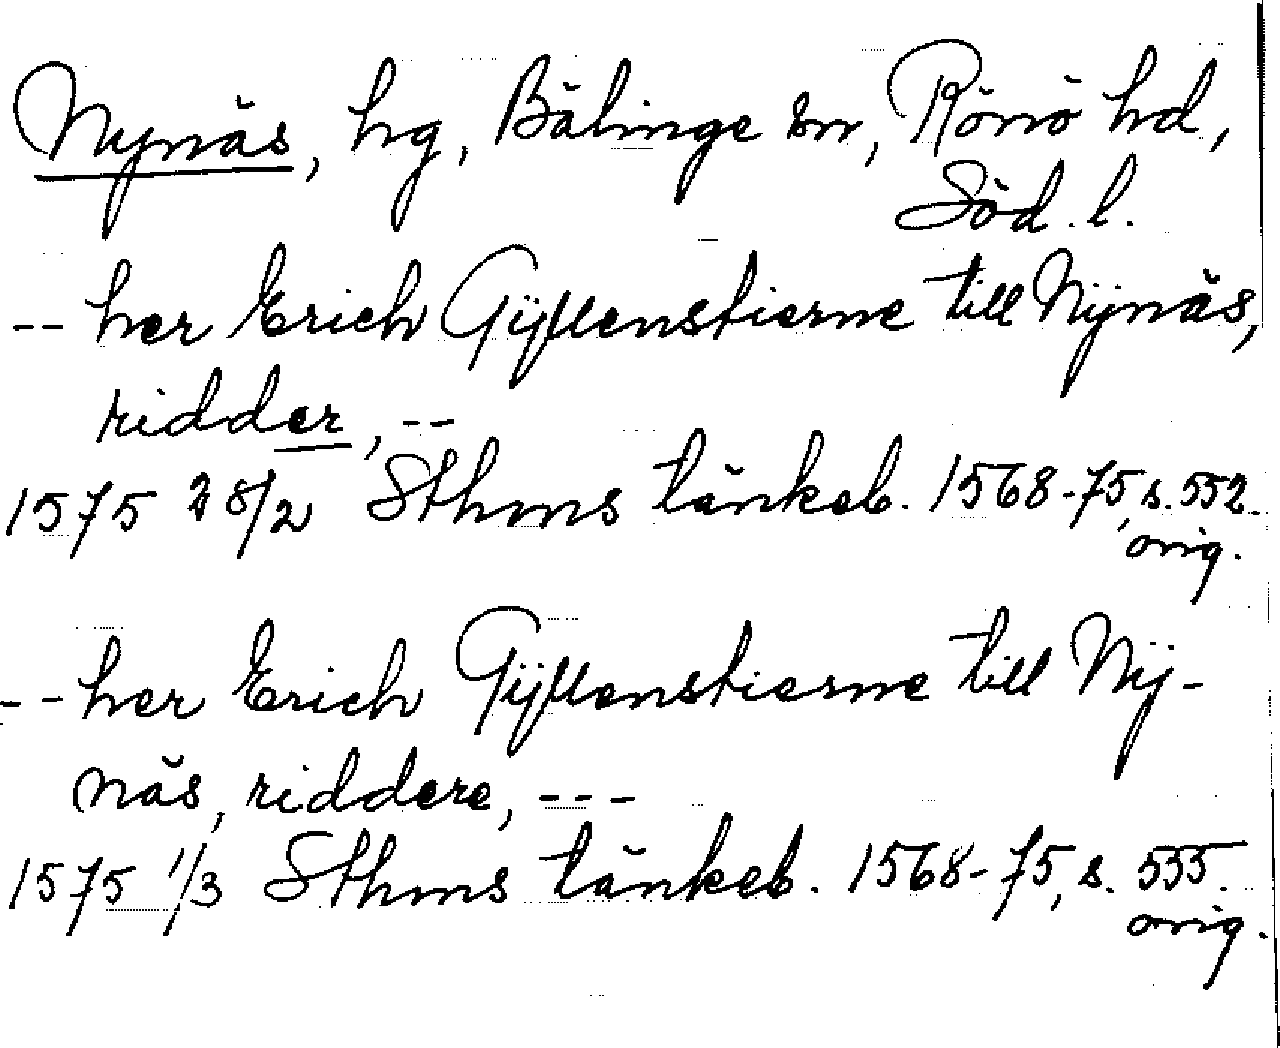 Nynäs, hg, Bälinge sn, Rönö hd,
Söd. l.
-- her Erich Gÿllenstierne till Nÿnäs,
ridder, --
1575 28/2 Sthms tänkeb. 1568-75, s. 552.
orig.
-- her Erich Gÿllenstierne till Nÿ-
näs, riddere, ---
1575 1/3 Sthms tänkeb. 1568-75, s. 555.
orig.